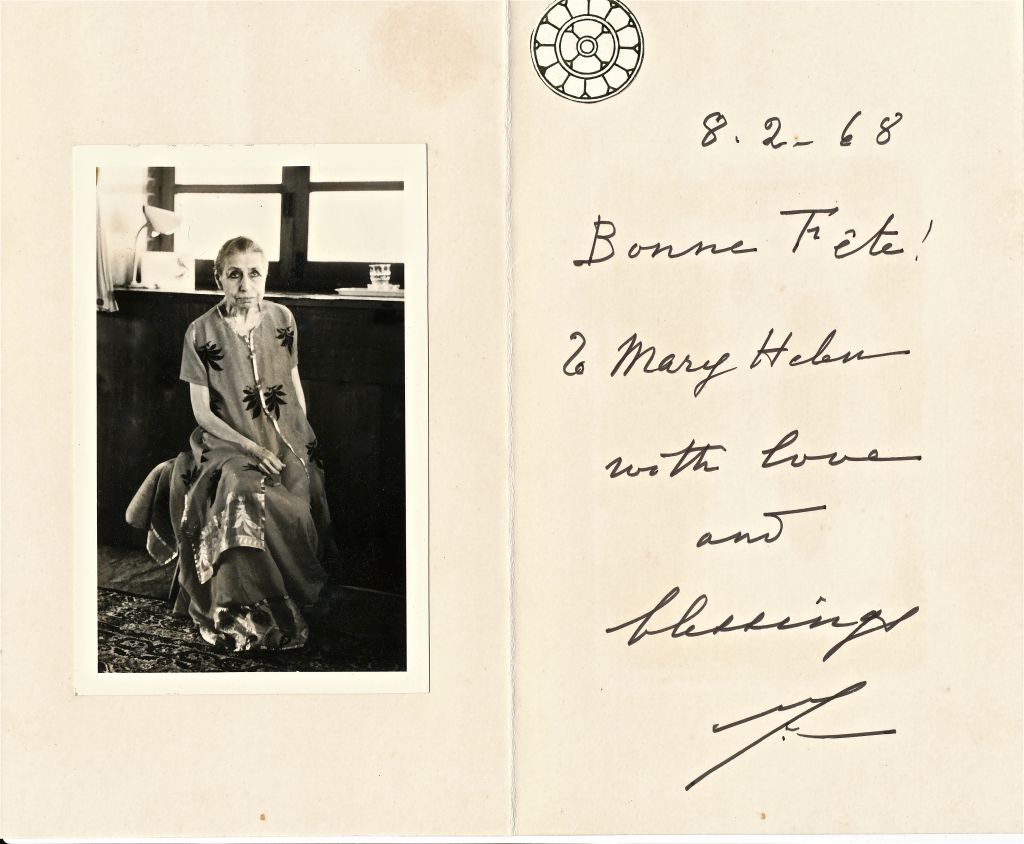 8.2-68
Bonne Fête!
to Mary Helen
with love
and
blessings